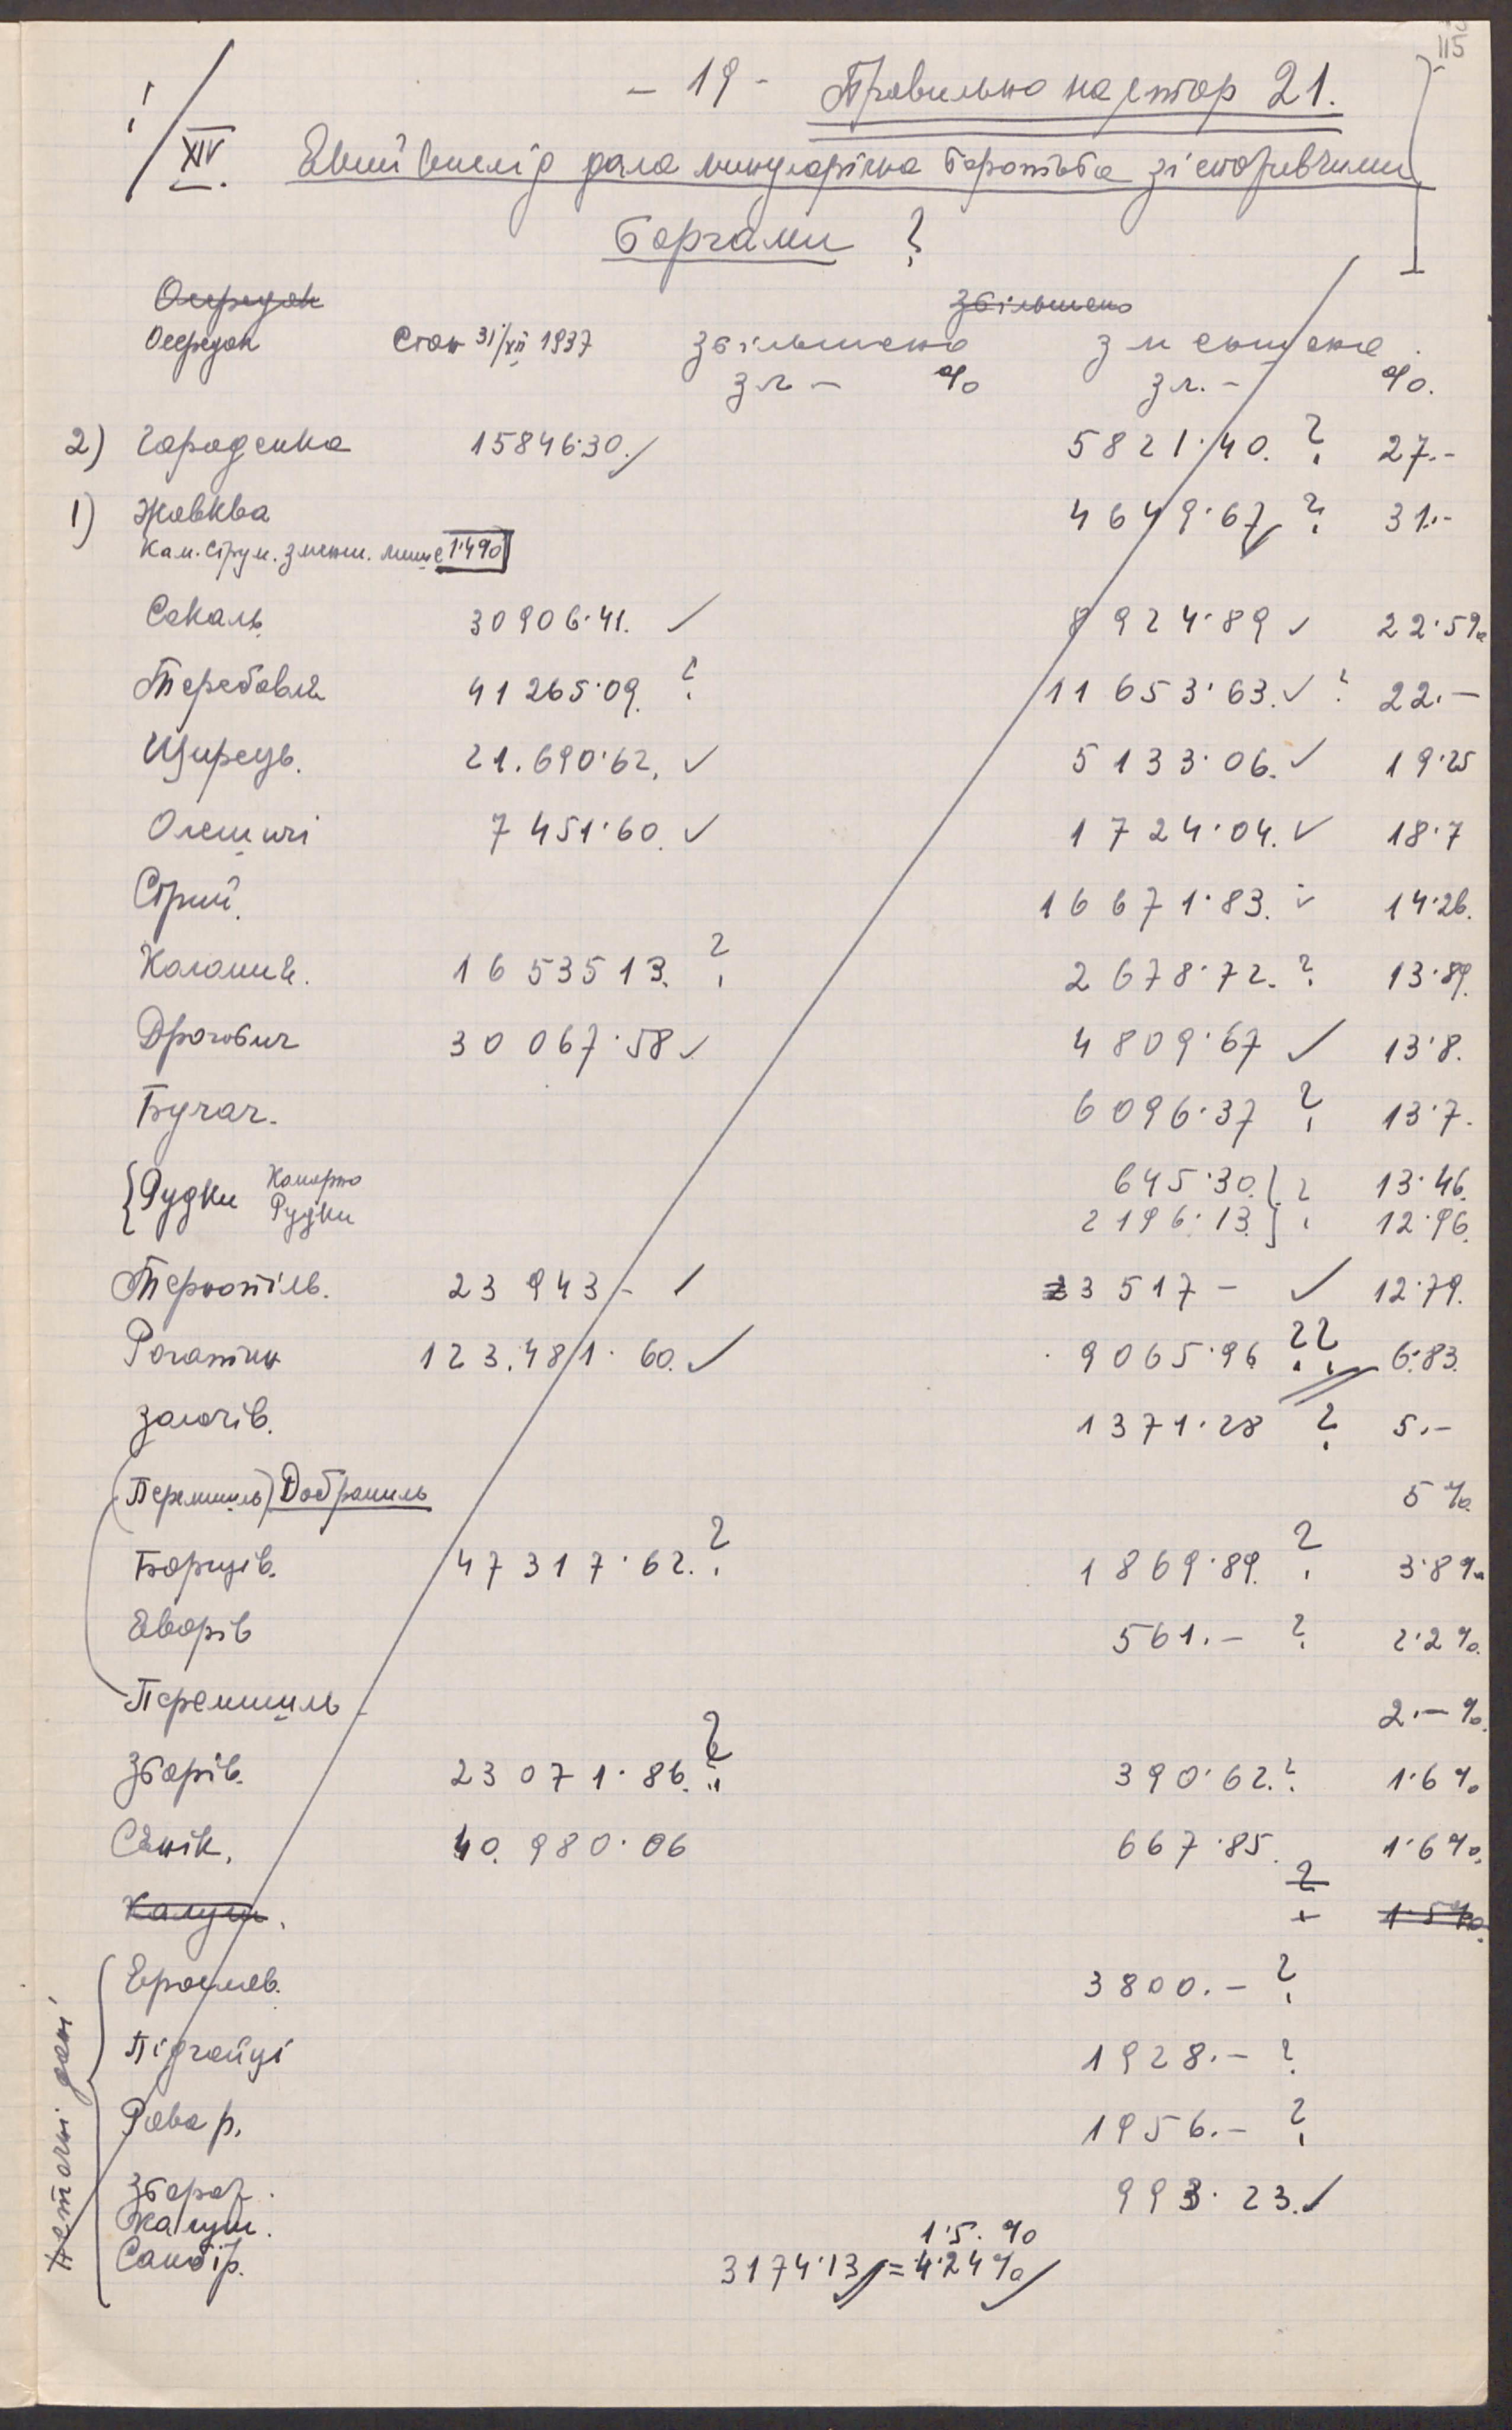 115
- 19 - Правильно на стор 21.
XIV. Який вислід дала минулорічна боротьба зі старими
боргами ?
Осередок збільшено
Осередок Стан 31/XII 1937 збільшено зменшено
зл - % зл. - %.
2) Городенка 15846·30. ✓ 5821·40. ? 27.-
1) Жовква 4649·67 ✓ ? 31.-
Кам. Струм. зменш. лише 1·490
Сокаль 30906·41. ✓ 8924·89 ✓ 22·5%
Теребовля 41265·09. ? 11653·63. ✓ ? 22.-
Щирець. 21.690·62. ✓ 5133·06. ✓ 19·25
Олешичі 7451·60. ✓ 1724·04. ✓ 18·7
Стрий. 16671·83. ✓ 14·26.
Коломия. 1653513. ? 2678·72. ? 13·89.
Дрогобич 30067·58 ✓ 4809·67 ✓ 13·8.
Бучач. 6096·37 ? 13·7.
{Рудки Комарно 645·30.} ? 13·46.
Рудки 2196·13.} 12·96.
Тернопіль. 23943- ✓ 3517- ✓ 12·79.
Рогатин 123.481·60. ✓ 9065·96 ?? 6·83.
Золочів. 1371·28 ? 5.-
(Перемишль) Добромиль 5%.
Борщів. 47317·62. ? 1869·89. ? 3·8%
Яворів 561.- ? 2·2%.
Перемишль 2.-%.
Зборів. 23071·86. ? 390·62. ? 1·6%
Сянік. 40.980·06 667·85. 1·6%.
Калуш. ? 1·5%.
Ярослав. 3800.- ?
Підгайці 1928.- ?
Рава р. 1956.- ?
Збараж. 993·23. ✓
Калуш. 1·5. %
Самбір. 3174·13 ✓ = 4·24% ✓
Неточні дані